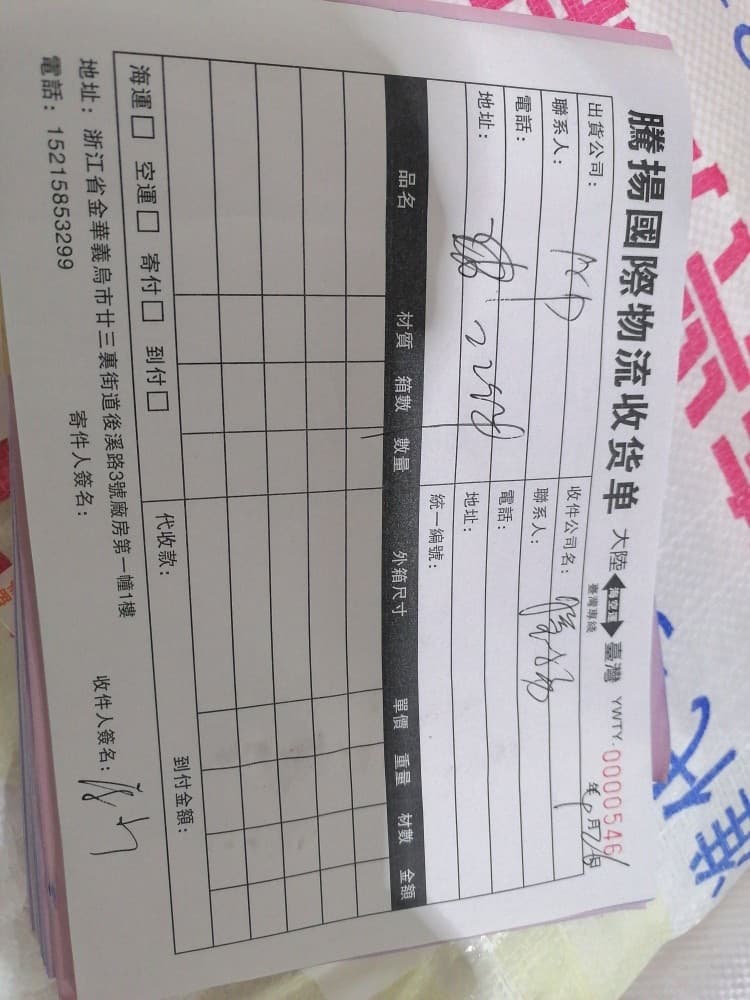 騰揚國際物流收货单 大陸 海空運 臺灣 YWTY.0000546
臺灣專綫
年6月26日
出貨公司: 收件公司名: 腾扬
聯系人: 聯系人:
電話: 電話:
地址: 地址:
統一編號:
品名 材質 箱數 數量 外箱尺寸 單價 重量 材數 金額
代收款: 到付金額:
海運 空運 寄付 到付
地址: 浙江省金華義烏市廿三裏街道後溪路3號廠房第一幢1樓
電話: 15215853299 寄件人簽名: 收件人簽名: